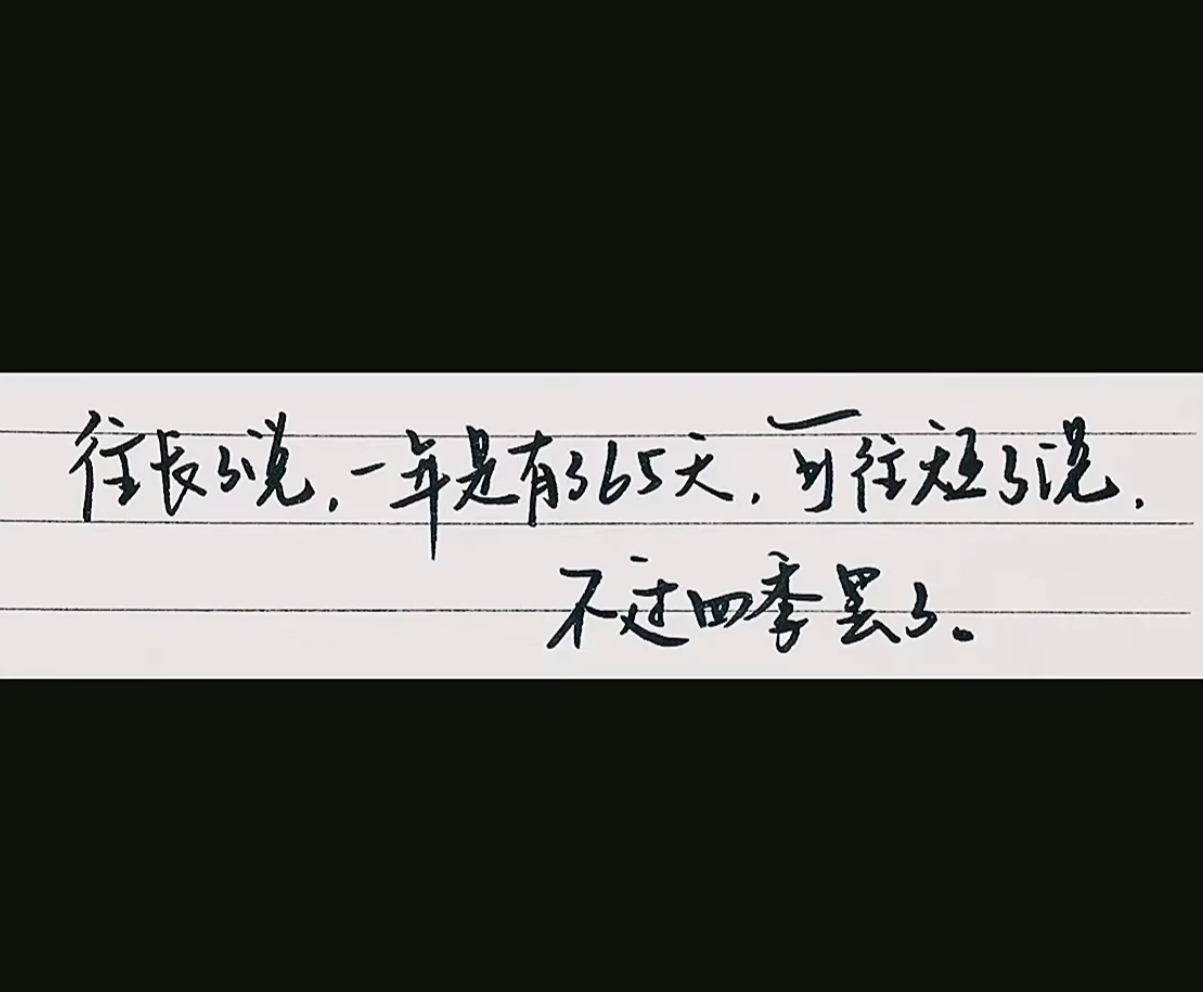 往长了说，一年是有365天，可往短了说，
不过四季罢了。